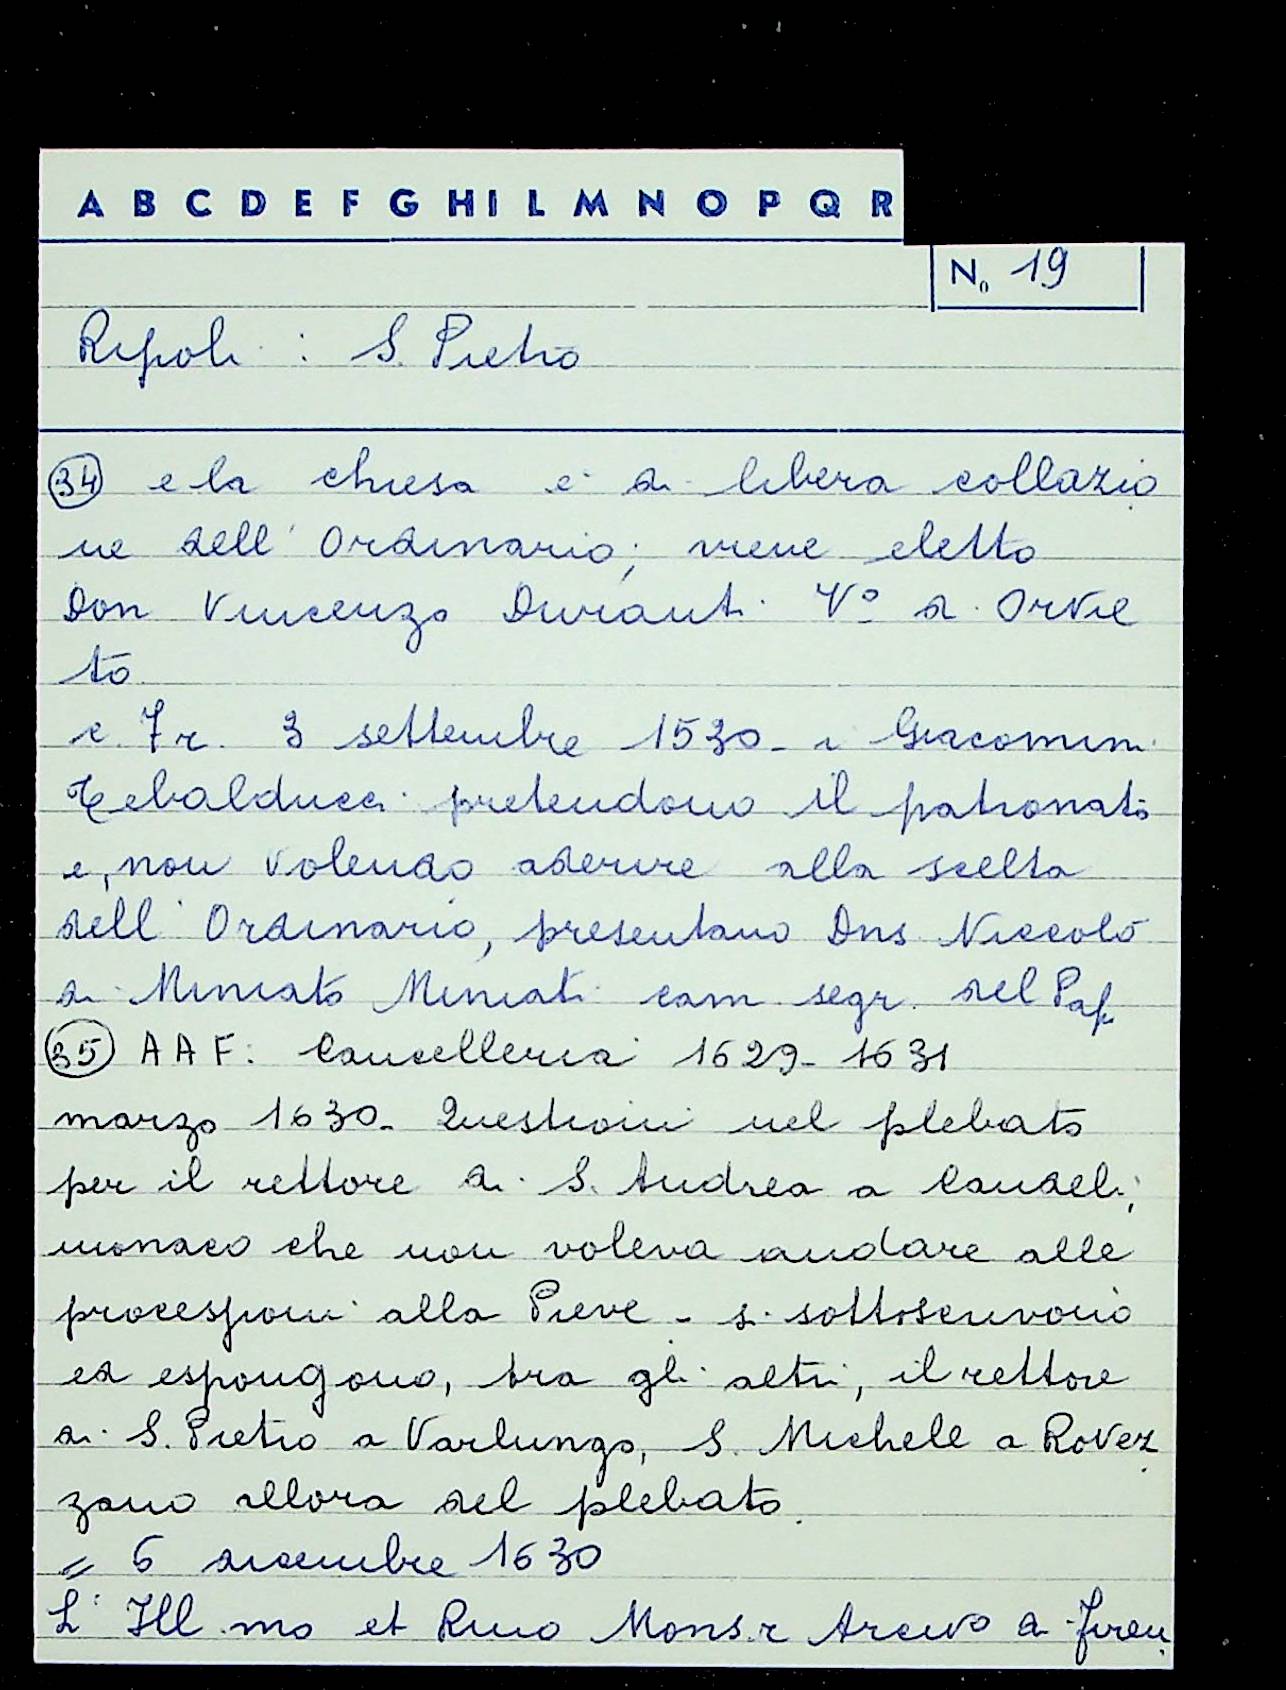 A B C D E F G H I L M N O P Q R
No 19
Ripoli : S. Pietro
34 e la chiesa è di libera collazio
ne dell'Ordinario; viene eletto
Don Vincenzo Duranti Vo di Orvie
to
c. 7 r. 3 settembre 1530 - i Giacomini
Tebalducci pretendono il patronato
e, non volendo aderire alla scelta
dell'Ordinario, presentano Dns Niccolò
di Miniato Miniati cam segr. del Pap.
35 A A F: Cancelleria 1629 - 1631
marzo 1630 - Questioni nel plebato
per il rettore di S. Andrea a Candeli;
monaco che non voleva andare alle
processioni alla Pieve - si sottoscrivono
ed espongono, tra gli altri, il rettore
di S. Pietro a Varlungo, S. Michele a Rovez
zano allora del plebato.
= 6 dicembre 1630
L'Ill.mo et Rmo Mons.r Arcivo di Firen